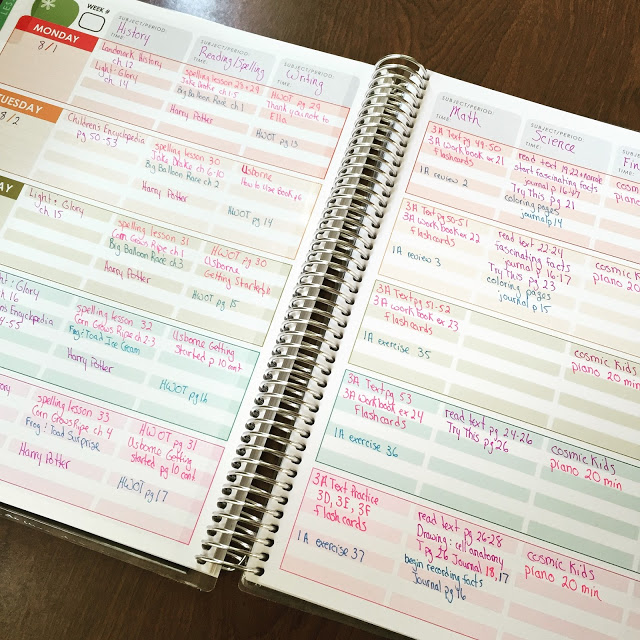 WEEK #
SUBJECT/PERIOD:
History
TIME:
SUBJECT/PERIOD:
Reading/Spelling
TIME:
SUBJECT/PERIOD:
Writing
TIME:
MONDAY
8/1
Landmark History
ch. 12
Light : Glory
ch. 14
spelling lesson 28+29
Jake Drake ch 1-5
Big Balloon Race ch 1
Harry Potter
HWOT pg 29
Thank you note to
Ella
HWOT pg 13
TUESDAY
8/2
Childrens Encyclopedia
pg 50-53
spelling lesson 30
Jake Drake ch 6-10
Big Balloon Race ch 2
Harry Potter
Usborne
How to Use Book
HWOT pg 14
AY
Light : Glory
ch. 15
spelling lesson 31
Corn Grows Ripe ch 1
Big Balloon Race ch3
Harry Potter
HWOT pg 30
Usborne
Getting Started
HWOT pg 15
: Glory
ch. 16
Encyclopedia
54-55
spelling lesson 32
Corn Grows Ripe ch 2-3
Frog : Toad Ice Cream
Harry Potter
Usborne Getting
Started p 10 cont
HWOT pg 16
spelling lesson 33
Corn Grows Ripe ch 4
Frog : Toad Surprise
Harry Potter
HWOT pg 31
Usborne Getting
started pg 10 cont
HWOT pg 17
SUBJECT/PERIOD:
Math
TIME:
SUBJECT/PERIOD:
Science
TIME:
SUBJECT/PE
Fin
TIME:
3A Text pg 49-50
3A workbook ex 21
flashcards
1A review 2
read text 19-22+Narrate
start fascinating facts
journal p 16-17
Try This pg 21
coloring pages
journal p 14
3A Text pg 50-51
3A work book ex 22
flashcards
1A review 3
read text 22-24
fascinating facts
journal pg 16-17
Try this pg 23
coloring pages
journal p 15
cosmic Kids
piano 20 m
3A Text pg 51-52
3A work book ex 23
flashcards
1A exercise 35
cosmic Kids
piano 20 min
3A Text pg 53
3A workbook ex 24
Flashcards
1A exercise 36
read text pg 24-26
Try This pg 26
cosmic Kids
piano 20 min
3A Text Practice
3D, 3E, 3F
flash cards
1A exercise 37
read text pg 26-28
Drawing : cell anatomy
T pg 26 Journal 18, 17
begin recording facts
Journal pg 16
cosmic Kids
piano 20 min